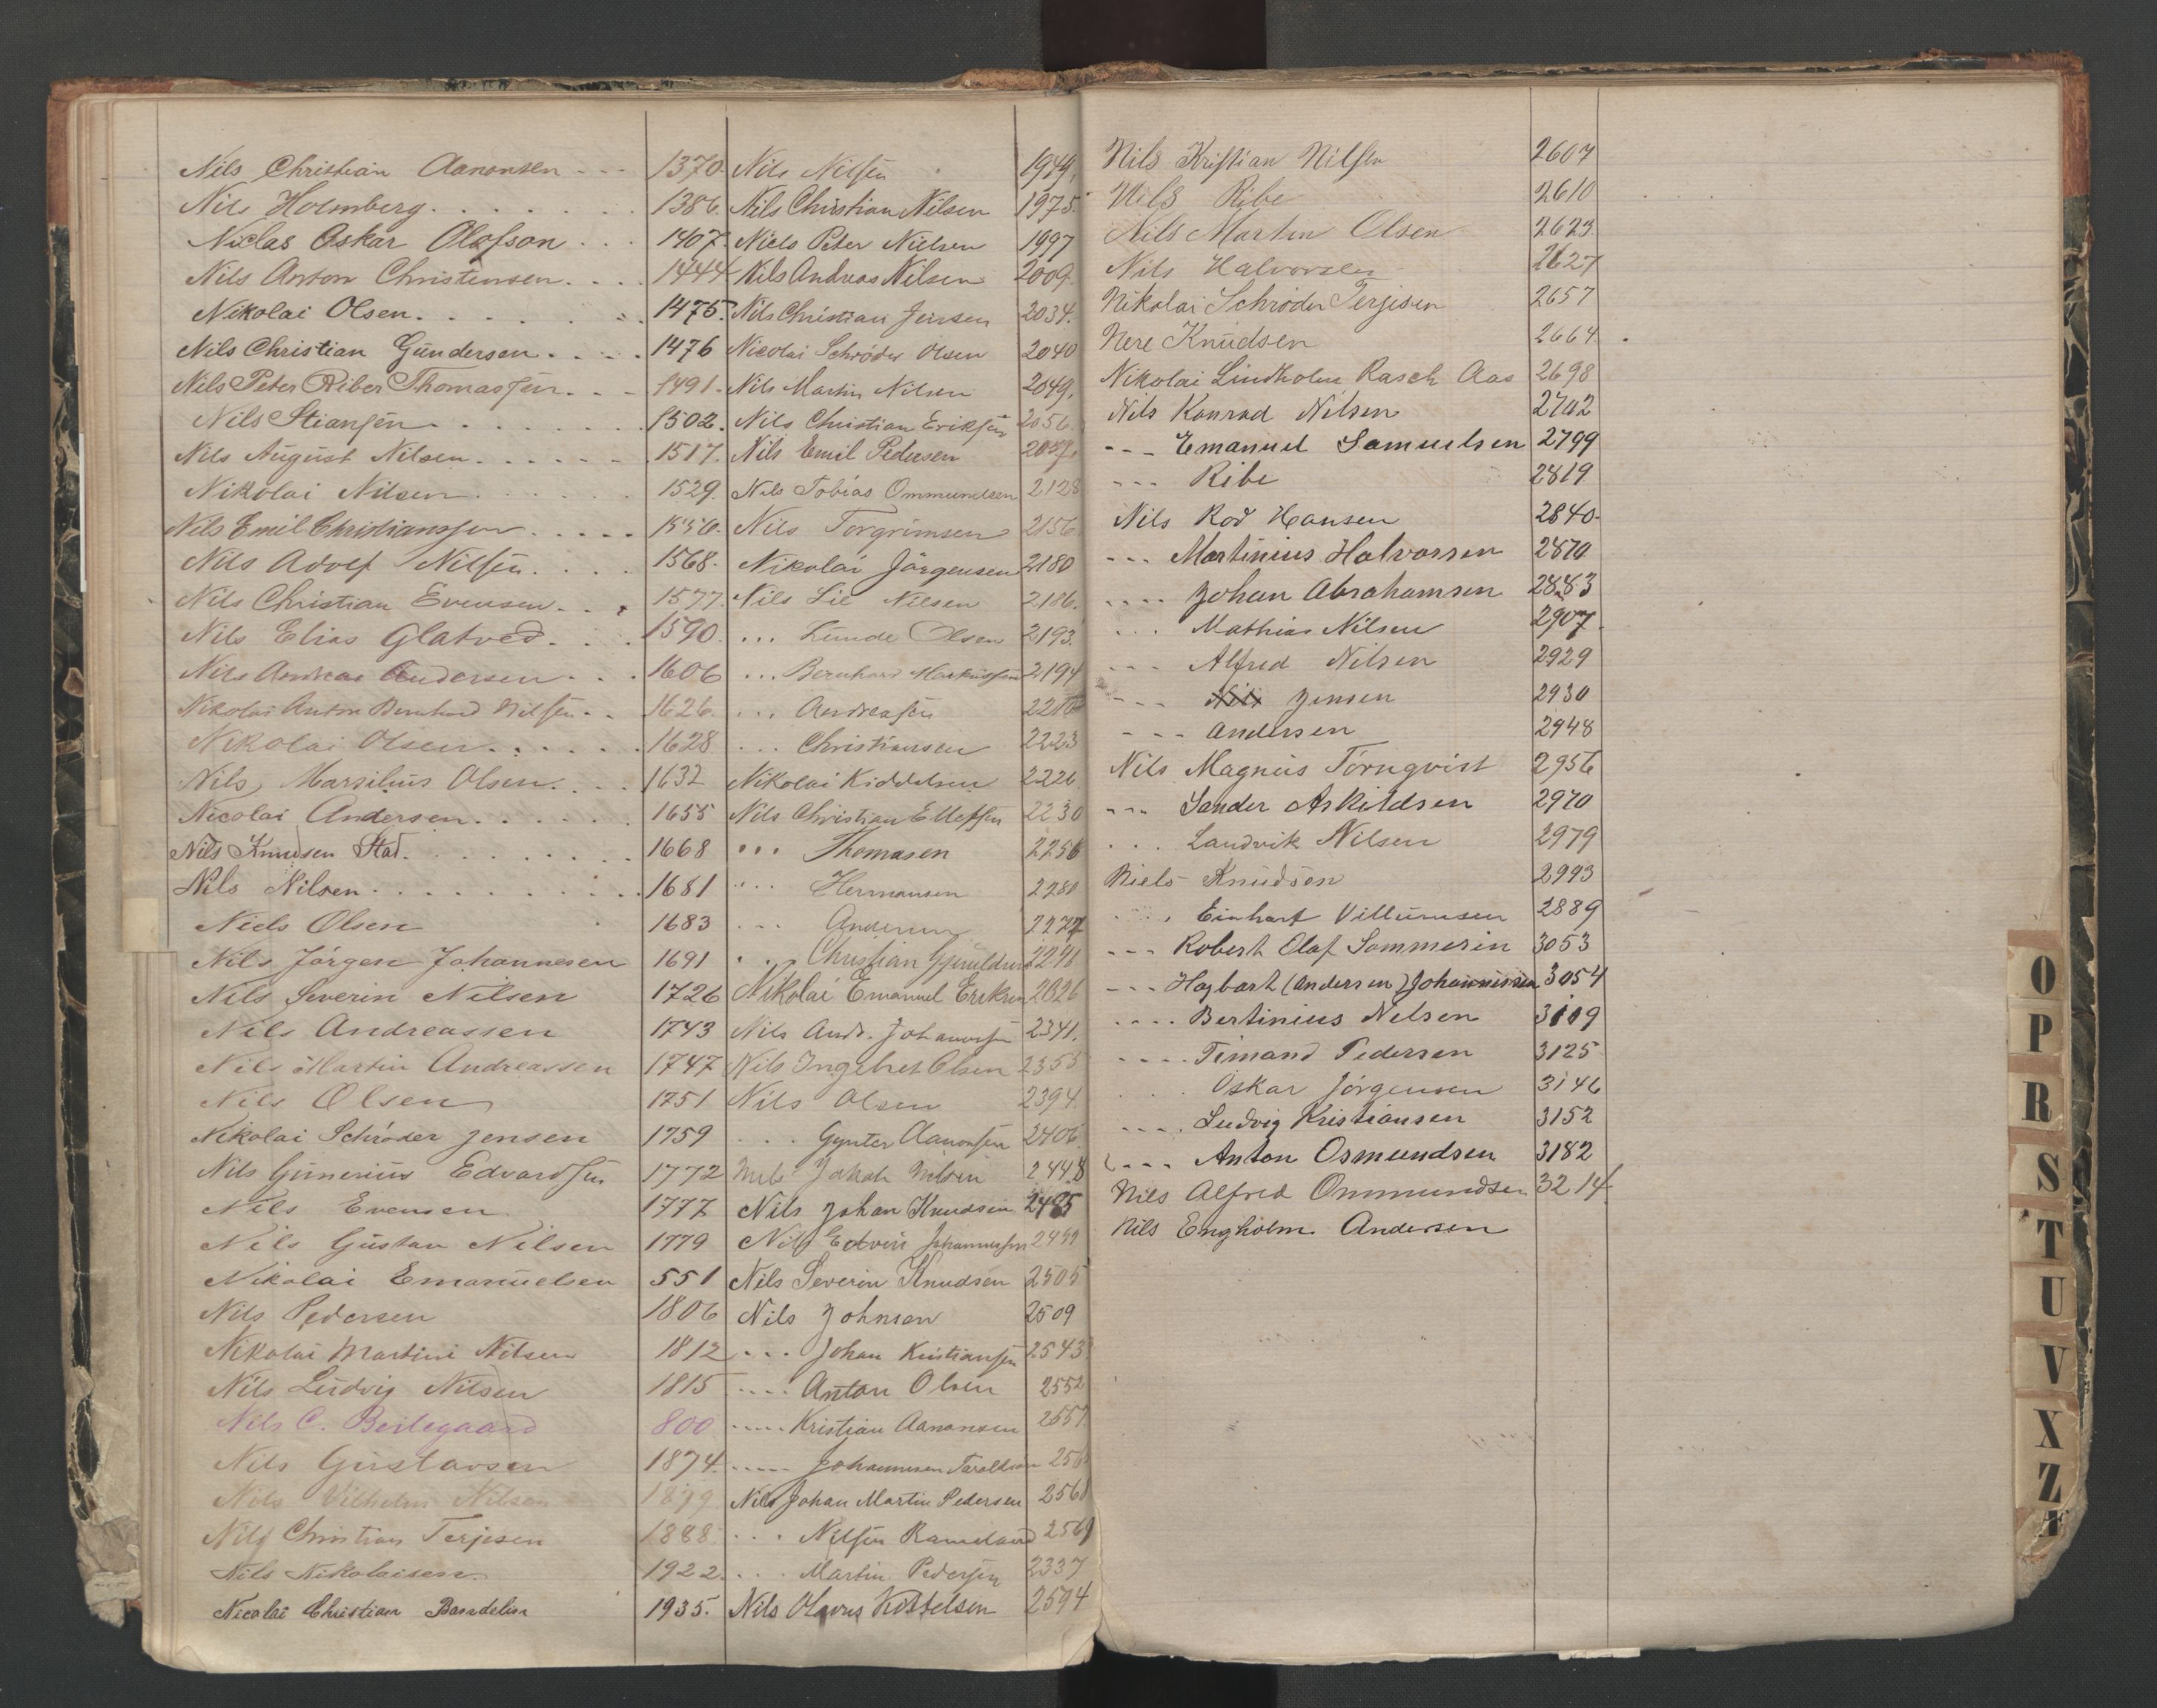 Nils Christian Aanonsen - - - 1370.
Nils Holmberg. . . . . . . 1386.
Niclas Oskar Olofson . . . 1407.
Nils Anton Christensen. . . . 1444
Nikolai Olsen. . . . . . . 1475.
Nils Christian Gundersen. . . . 1476
Nils Peter Riber Thomassen. - - 1491.
Nils Stiansen. . . . . . . 1502.
Nils August Nilsen. . . . . . 1517.
Nikolai Nilsen . . . . . . 1529.
Nils Emil Christianssen . . . . .
Nils Adolf Nilsen. . . . 1568.
Nils Christian Evensen. . . 1577.
Nils Elias Glatved. . . . 1590.
Nils Andreas Andersen. . . 1606
Nikolai Anton Bernhard Nilsen. . 1626.
Nikolai Olsen. . . . . . 1628
Nils Marsilius Olsen. . . . 1632
Nicolai Andersen. . . . . . 1655
Nils Knudsen Stad. . . . . . . . 1668
Nils Nilsen. . . . . . . . . 1681
Niels Olsen 1683
Nils Jörgen Johannesen 1691
Nils Severin Nilsen 1726
Nils Andreassen 1743
Nils Martin Andreassen 1747
Nils Olsen 1751
Nikolai Schröder Jensen 1759
Nils Gunerius Edvardsen 1772
Nils Evensen 1777
Nils Gustav Nilsen 1779
Nikolai Emanuelsen 551
Nils Pedersen 1806
Nikolai Martini Nilsen 1812
Nils Ludvig Nilsen 1815
Nils C. Beilegaard 800
Nils Gustavsen 1874.
Nils Vilhelm Nilsen
Nils Christian Terjesen 1888.
Nils Nikolaisen. 1922.
Nicolai Christian 1935.
Nils Nilsen
Nils Christian Nilsen 1975.
Niels Peter Nielsen 1997
Nils Andreas Nilsen 2009.
Nils Christian Jensen 2034.
Nicolai Schröder Olsen 2040
Nils Martin Nilsen 2049.
Nils Christian Eriksen 2056.
Nils Emil Pedersen
Nils Tobias Ommundsen 2128
Nils Torgrimsen 2156
Nikolai Jörgensen 2180
Nils Lie Nilsen 2186.
. . . Lunde Olsen 2193.
. . . Bernhard Markussen 2194
. . . Andreasen
. . . Christiansen 2223
Nikolai Kiddelsen 2226
Nils Christian Ellefsen 2230
. . . Thomasen 2256
. . . Hermansen 2280
. . . Andersen
. . . Christian
Nikolai Emanuel Eriksen 2326
Nils Andr. Johannesen 2341.
Nils Ingebret Olsen 2355
Nils Olsen 2394.
. . . Gunter Aanonsen 2406.
Nils Jakob Nilsen 2448
Nils Johan Knudsen 2485
Nils Edvin Johannessen
Nils Severin Knudsen 2505
Nils Johnsen 2509
. . . Johan Kristiansen 2543
. . . . Anton Olsen 2552
. . . . . Kristian Aanonsen 2557
. . . . . Johannesen Taraldsen
Nils Johan Martin Pedersen 2568
. . . Nilsen 2569
. . . Martin Pedersen 2337
Nils Olavus Kittelsen 2594
Nils Kristian Nilsen 2607
Nils Ribe 2610
Nils Martin Olsen 2623.
Nils Halvorsen 2627
Nikolai Schröder Terjesen 2657
Nere Knudsen 2664
Nikolai Lindholm Rasch Aas 2698
Nils Konrad Nilsen 2742
- - - Emanuel Samuelsen 2799
- - - Ribe 2819
Nils Rod Hansen 2840.
- - - Martinius Halvorsen 2870
. . . . Johan Abrahamsen 2883
. . . Mathias Nilsen 2907.
- - - Alfred Nilsen 2929
- - - Nils Jensen 2930
- - - Andersen 2948
Nils Magnus Törnqvist 2956
- - - Sander Askildsen 2970
. . . Landvik Nilsen 2979
Niels Knudsen 2993
. . . Einhart Villumsen 2889
- - - Robert Olaf Sommerin 3053
- - - Hagbart (Andersen) Johannessen 3054
. . . . Bertinius Nelsen 3119
- - - - Timand Pedersen 3125
. . . . Oskar Jörgensen 3146
. . . . Ludvig Kristiansen 3152
- - - Anton Osmundsen 3182
Nils Alfred Ommundsen 3214
Nils Engholm Andersen
O
P
R
S
T
U
V
X
Z